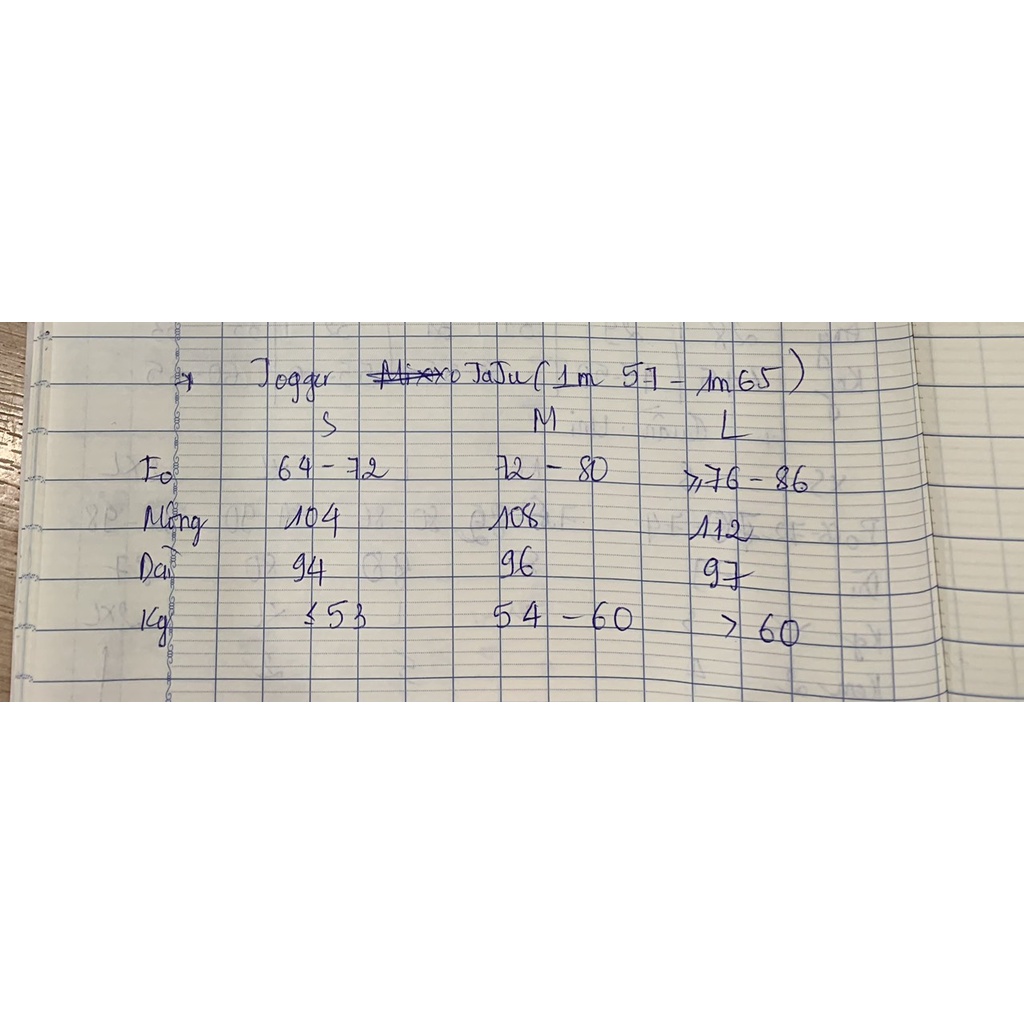 → Jogger TaTu (1m 57 - 1m65)
S M L
Eo 64 - 72 72 - 80 ≥76 - 86
Mông 104 108 112
Dài 94 96 97
Kg ≤ 53 54 - 60 > 60